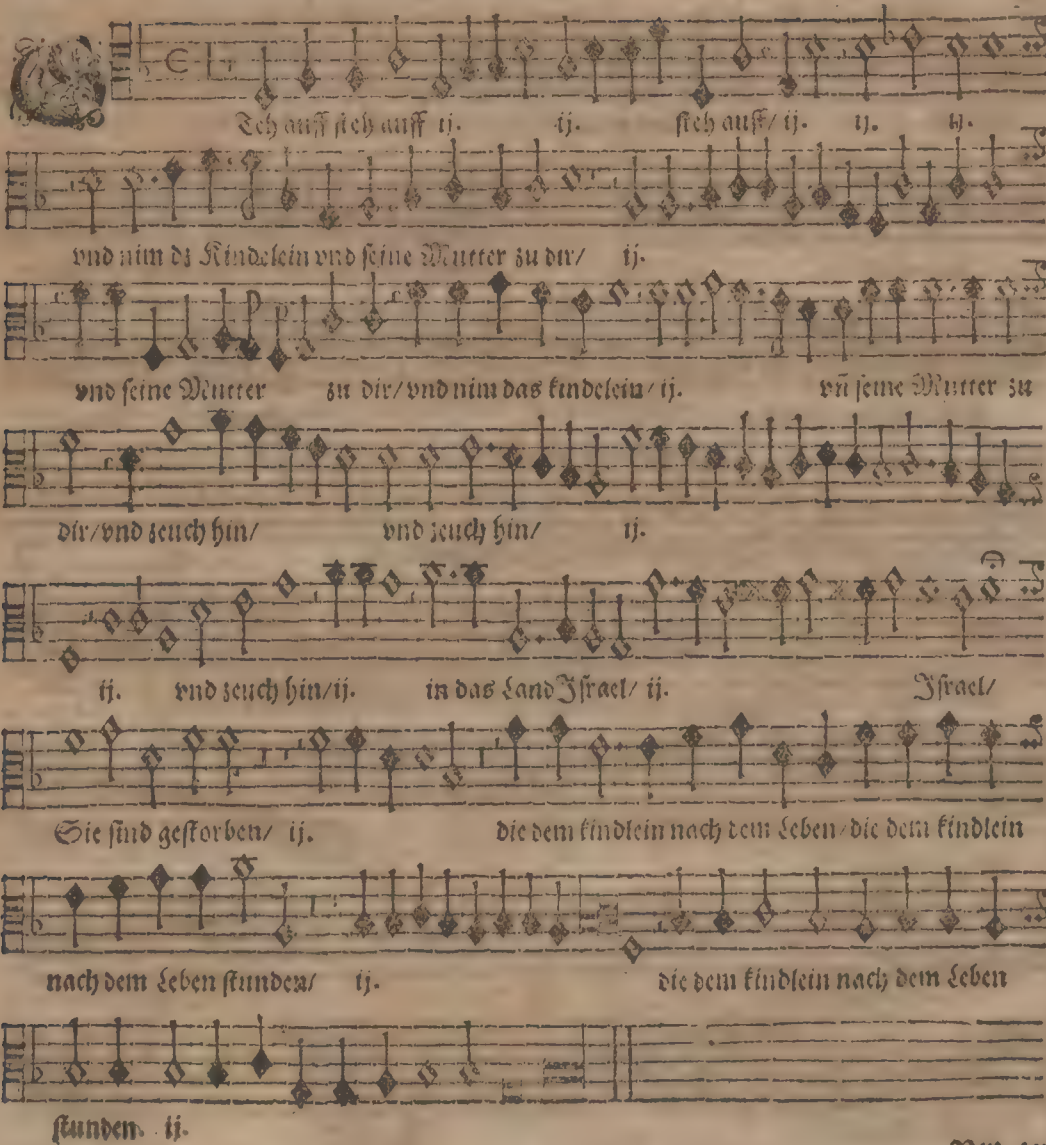 STeh auff steh auff ij. ij. steh auff/ ij. ij. ij.
vnd nim dz Kindelein vnd seine Mutter zu dir/ ij.
vnd seine Mutter zu dir/ vnd nim das kindelein/ ij. vñ seine Mutter zu
dir/ vnd zeuch hin/ vnd zeuch hin/ ij.
ij. vnd zeuch hin/ ij. in das Land Israel/ ij. Israel/
Sie sind gestorben/ ij. die dem kindlein nach dem Leben/ die dem kindlein
nach dem Leben stunden/ ij. die dem kindlein nach dem Leben
stunden. ij.